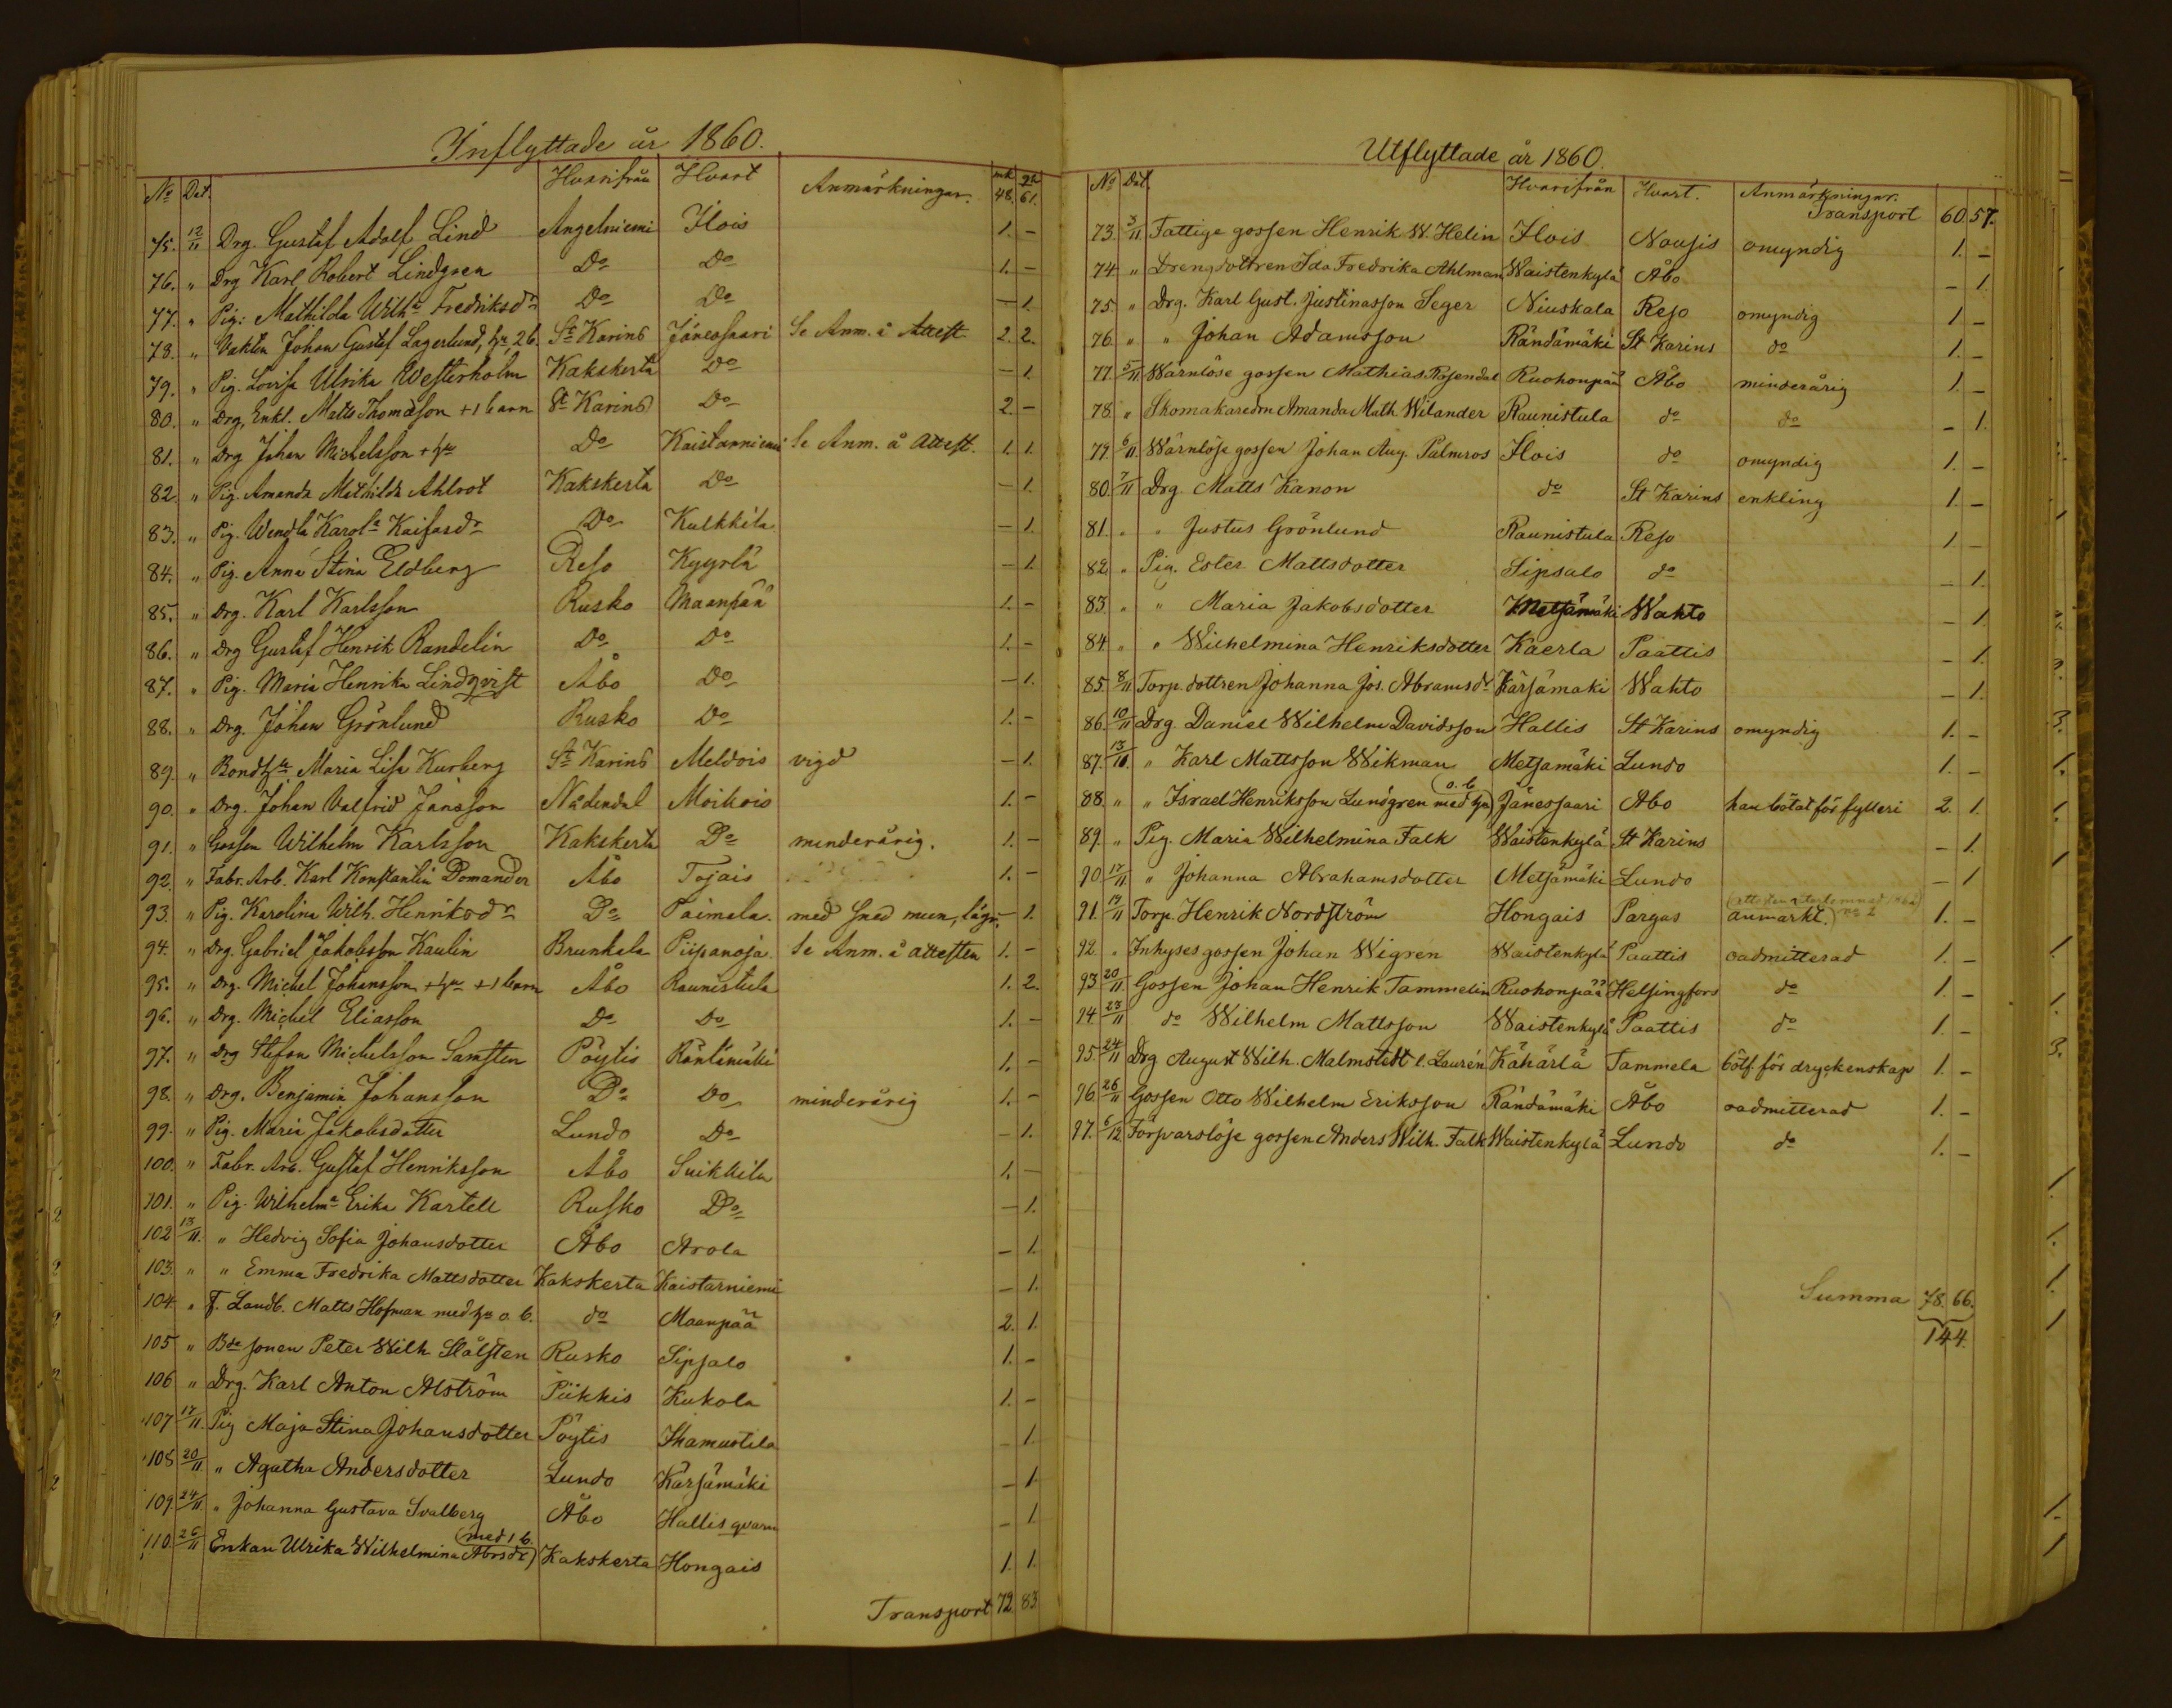 Inflyttade år 1860.
No Dat. Hvarifrån Hvart Anmärkningar. mk 48. qk 61.
75. 12/11 Drg. Gustaf Adolf Lind Angelniemi Ilois 1. -
76. " Drg Karl Robert Lindgren Do Do 1. -
77. " Pig: Mathilda Wilha Fredriksdr Do Do - 1.
78. " Vakten Johan Gustaf Lagerlund, hu 2 b. St Karins Jänessaari Se Anm. å Attest. 2. 2.
79. " Pig. Lovisa Ulrika Westerholm Kakskerta Do - 1.
80. " Drg. Enkl. Matts Thomasson +1 barn St Karins Do 2 -
81. " Drg Johan Michelsson + hu Do Kaistarniemi Se Anm. å Attest. 1. 1.
82. " Pig. Amanda Mathilda Ahlrot Kakskerta Do - 1.
83. " Pig. Wendla Karola Kaifasdr Do Kulkkila - 1.
84. " Pig. Anna Stina Eldberg Reso Kyyrlä - 1.
85. " Drg. Karl Karlsson Rusko Maanpää 1. -
86. " Drg Gustaf Henrik Randelin Do Do 1. -
87. " Pig. Maria Henrika Lindqvist Åbo Do - 1.
88. " Drg. Johan Grönlund Rusko Do 1. -
89. " Bondhu Maria Lisa Kurberg St Karins Meldois vigd - 1.
90. " Drg. Johan Valfrid Jansson Nådendal Moikois 1. -
91. " Gossen Wilhelm Karlsson Kakskerta Do minderårig. 1. -
92. " Fabr. Arb. Karl Konstantin Domander Åbo Tojais 1. -
93. " Pig. Karolina Wilh. Henriksdr Do Paimala. med sned mun, lägr. - 1.
94. " Drg. Gabriel Jakobsson Kaulin Brunkala Piipanoja. Se Anm. å attesten 1. -
95. " Drg. Michel Johansson + hu +1 barn Åbo Raunistula 1. 2.
96. " Drg. Michel Eliasson Do Do 1. -
97. " Drg Stefan Michelsson Samsten Pöytis Räntämäki 1. -
98. " Drg. Benjamin Johansson Do Do minderårig 1. -
99. " Pig. Maria Jakobsdotter Lundo Do - 1.
100. " Fabr. Arb. Gustaf Henriksson Åbo Suikkila 1. -
101. " Pig. Wilhelma Erika Kartell Rusko Do - 1.
102 13/11. " Hedvig Sofia Johansdotter Åbo Arola - 1.
103. " " Emma Fredrika Mattsdotter Kakskerta Kaistarniemi - 1.
104. " F. Landb. Matts Hofman med hu o. b. do Maanpää 2. 1.
105 " Bde sonen Peter Wilh. Stålsten Rusko Sipsalo 1. -
106 " Drg. Karl Anton Alström Piikkis Kukola 1. -
107 17/11. Pig Maja Stina Johansdotter Pöytis Ihamustila - 1.
108 20/11. " Agatha Andersdotter Lundo Kärsämäki - 1.
109. 24/11. " Johanna Gustava Svalberg Åbo Hallis qvarn - 1
110. 26/11 Enkan Ulrika Wilhelmina Abrsdr (med 1 b.) Kakskerta Hongais 1. 1.
Transport 72. 83
Utflyttade år 1860.
No Dat Hvarifrån Hvart. Anmärkningar.
Transport 60 57.
73. 3/11 Fattige gossen Henrik W. Helin Ilois Nousis omyndig 1. -
74 " Drengdottren Ida Fredrika Ahlman Waistenkylä Åbo - 1.
75. " Drg. Karl Gust. Justinasson Seger Niuskala Reso omyndig 1 -
76. " " Johan Adamsson Rändämäki St Karins do 1. -
77. 5/11 Wärnlöse gossen Mathias Rosendal Ruohonpää Åbo minderårig 1. -
78. " Skomakaredm Amanda Math. Wilander Raunistula do do - 1.
79. 6/11. Wärnlöse gossen Johan Aug. Palmros Ilois do omyndig 1. -
80. 7/11 Drg. Matts Kanon do St Karins enkling 1. -
81. " " Justus Grönlund Raunistula Reso 1 -
82. " Pig. Ester Mattsdotter Sipsalo do - 1.
83 " " Maria Jakobsdotter Metsämäki Wahto - 1.
84. " " Wilhelmina Henriksdotter Kaerla Paattis - 1.
85. 8/11 Torp. dottren Johanna Jos. Abramsdr Kärsämäki Wahto - 1.
86. 10/11 Drg. Daniel Wilhelm Davidsson Hallis St Karins omyndig 1. -
87. 13/11. " Karl Mattsson Wikman Metsamäki Lundo 1. -
88. " " Israel Henriksson Lundgren med hu (o. b) Jänessaari Abo han bötat för fylleri 2. 1.
89. " Pig. Maria Wilhelmina Falk Waistenkylä St Karins - 1.
90 17/11 " Johanna Abrahamsdotter Metsämäki Lundo - 1
91. 19/11 Torp. Henrik Nordström Hongais Pargas anmärkt. 1. -
92. " Inhyses gossen Johan Wigren Waistenkylä Paattis oadmitterad 1. -
93 20/11 Gossen Johan Henrik Tammelin Ruohonpää Helsingfors do 1. -
94. 23/11 do Wilhelm Mattsson Waistenkylä Paattis do 1. -
95. 24/11 Drg August Wilh. Malmstedt l. Laurén Kähärlä Tammela bötf. för dryckenskap 1. -
96. 26/11 Gossen Otto Wilhelm Eriksson Rändämäki Åbo oadmitterad 1. -
97. 6/12 Försvarslöse gossen Anders Wilh. Falk Waistenkylä Lundo do 1. -
Summa 78. 66.
144.